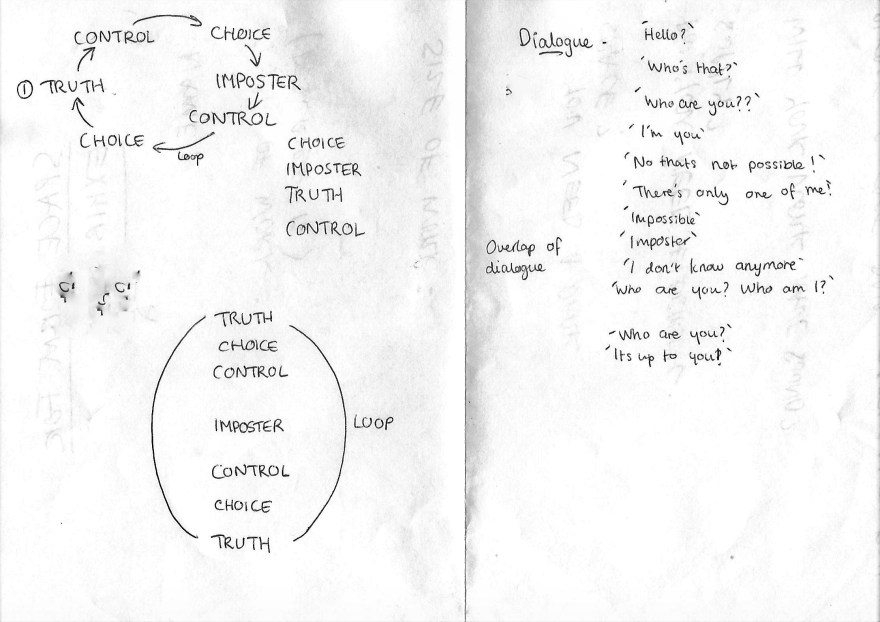 CONTROL
CHOICE
① TRUTH
IMPOSTER
CONTROL
CHOICE
Loop
CHOICE
IMPOSTER
TRUTH
CONTROL
TRUTH
CHOICE
CONTROL
IMPOSTER
LOOP
CONTROL
CHOICE
TRUTH
Dialogue -
'Hello?'
'Who's that?'
'Who are you??'
'I'm you'
'No thats not possible!'
'There's only one of me!'
'Impossible'
'Imposter'
Overlap of
dialogue
'I don't know anymore'
'Who are you? Who am I?'
-Who are you?'
'Its up to you?'